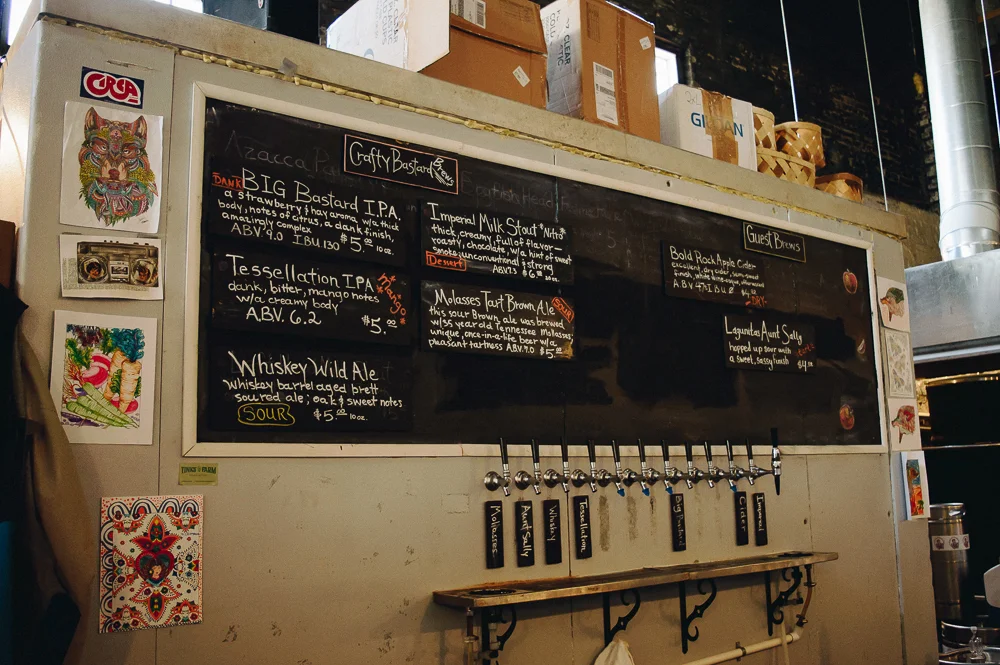 CIRCA
Crafty Bastard Brews
DANK
BIG Bastard I.P.A.
a strawberry & hay aroma w/a thick
body, notes of citrus, a dank finish,
amazingly complex
ABV 9.0 IBU 130 $5.00 10oz.
Tessellation IPA
dank, bitter, mango notes
w/a creamy body
ABV. 6.2 $5.00
*Mango*
Whiskey Wild Ale
whiskey barrel aged brett
soured ale; oak & sweet notes
SOUR $5.00 10oz.
Imperial Milk Stout *Nitro*
thick, creamy, full of flavor—
roasty, chocolate, w/a hint of
smoke; unconventional & strong
Dessert ABV 7.3 $6.00
Molasses Tart Brown Ale
SOUR
this sour Brown ale was brewed
w/55 year old Tennessee Molasses,
unique, once-in-a-life beer w/a
pleasant tartness ABV. 7.0 $5.00
Guest Brews
Bold Rock Apple Cider
excellent, dry cider, semi-sweet
A.B.V 4.7 I.B.U
DRY
Lagunitas Aunt Sally
hopped up sour with
a sweet, sassy finish
Molasses
Aunt Sally
Whiskey
Tessellation
Big Bastard
Cider
Imperial